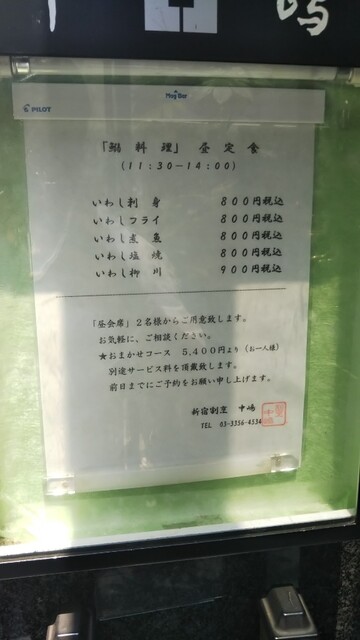 嶋
PILOT
Mag Bar
「鰯料理」昼定食
(11:30-14:00)
いわし刺身 800円税込
いわしフライ 800円税込
いわし煮魚 800円税込
いわし塩焼 800円税込
いわし柳川 900円税込
「昼会席」2名様からご用意致します。
お気軽に、ご相談ください。
★おまかせコース 5,400円より（お一人様）
別途サービス料を頂戴致します。
前日までにご予約をお願い申し上げます。
新宿割烹 中嶋
TEL 03-3356-4534